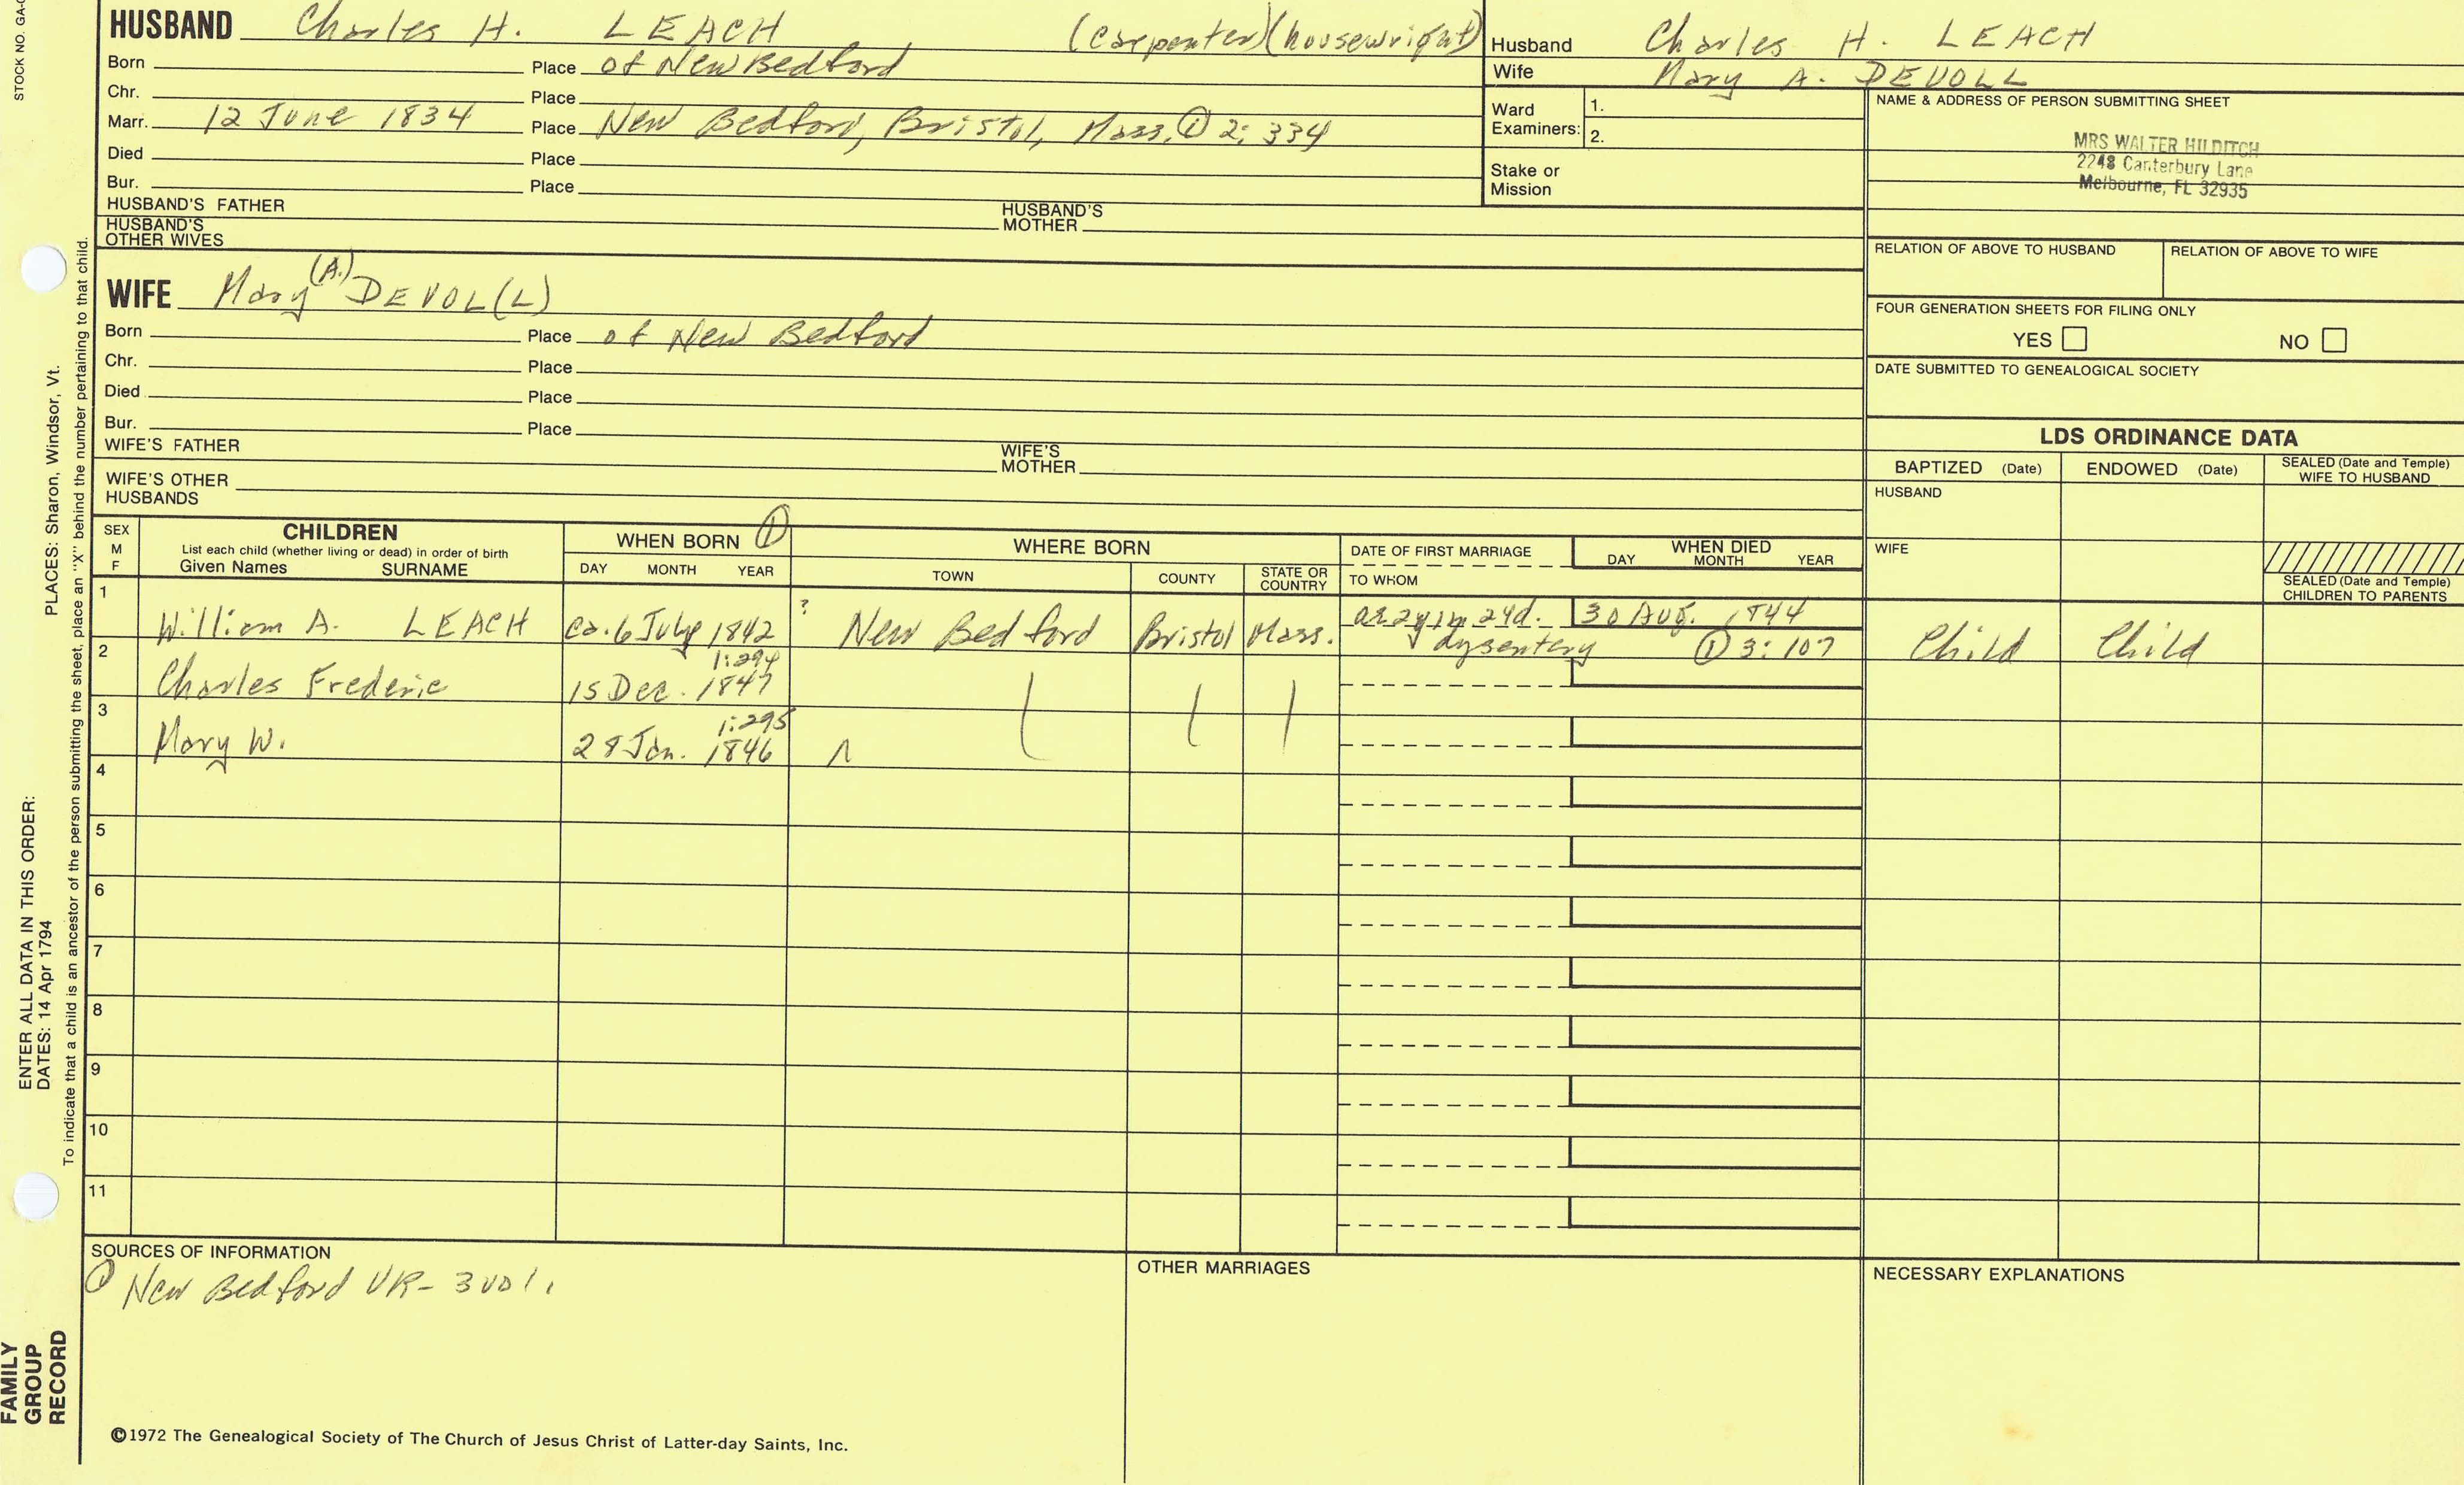 STOCK NO. GA-
HUSBAND Charles H. LEACH (carpenter)(housewright)
Born Place of New Bedford
Chr. Place
Marr. 12 June 1834 Place New Bedford, Bristol, Mass. ① 2: 334
Died Place
Bur. Place
HUSBAND'S FATHER HUSBAND'S MOTHER
HUSBAND'S OTHER WIVES
Husband Charles H. LEACH
Wife Mary A. DEVOLL
Ward Examiners: 1.
2.
Stake or Mission
NAME & ADDRESS OF PERSON SUBMITTING SHEET
MRS WALTER HILDITCH
2248 Canterbury Lane
Melbourne, FL 32935
RELATION OF ABOVE TO HUSBAND RELATION OF ABOVE TO WIFE
FOUR GENERATION SHEETS FOR FILING ONLY
YES NO
DATE SUBMITTED TO GENEALOGICAL SOCIETY
WIFE Mary (A.) DEVOL(L)
Born Place of New Bedford
Chr. Place
Died Place
Bur. Place
WIFE'S FATHER WIFE'S MOTHER
WIFE'S OTHER HUSBANDS
LDS ORDINANCE DATA
BAPTIZED (Date) ENDOWED (Date) SEALED (Date and Temple) WIFE TO HUSBAND
HUSBAND
WIFE
SEALED (Date and Temple) CHILDREN TO PARENTS
SEX M F CHILDREN WHEN BORN ① WHERE BORN DATE OF FIRST MARRIAGE WHEN DIED
List each child (whether living or dead) in order of birth
Given Names SURNAME DAY MONTH YEAR TOWN COUNTY STATE OR COUNTRY TO WHOM DAY MONTH YEAR
1 William A. LEACH ca. 6 July 1842 ? New Bedford Bristol Mass. 30 Aug. 1844
dysentery ① 3: 107 Child Child
2 Charles Frederic 15 Dec. 1847 1:294
3 Mary W. 28 Jan. 1846 1:295
4
5
6
7
8
9
10
11
SOURCES OF INFORMATION
① New Bedford VR- 3 vol.
OTHER MARRIAGES
NECESSARY EXPLANATIONS
©1972 The Genealogical Society of The Church of Jesus Christ of Latter-day Saints, Inc.
ENTER ALL DATA IN THIS ORDER:
DATES: 14 Apr 1794 PLACES: Sharon, Windsor, Vt.
To indicate that a child is an ancestor of the person submitting the sheet, place an "X" behind the number pertaining to that child.
FAMILY
GROUP
RECORD